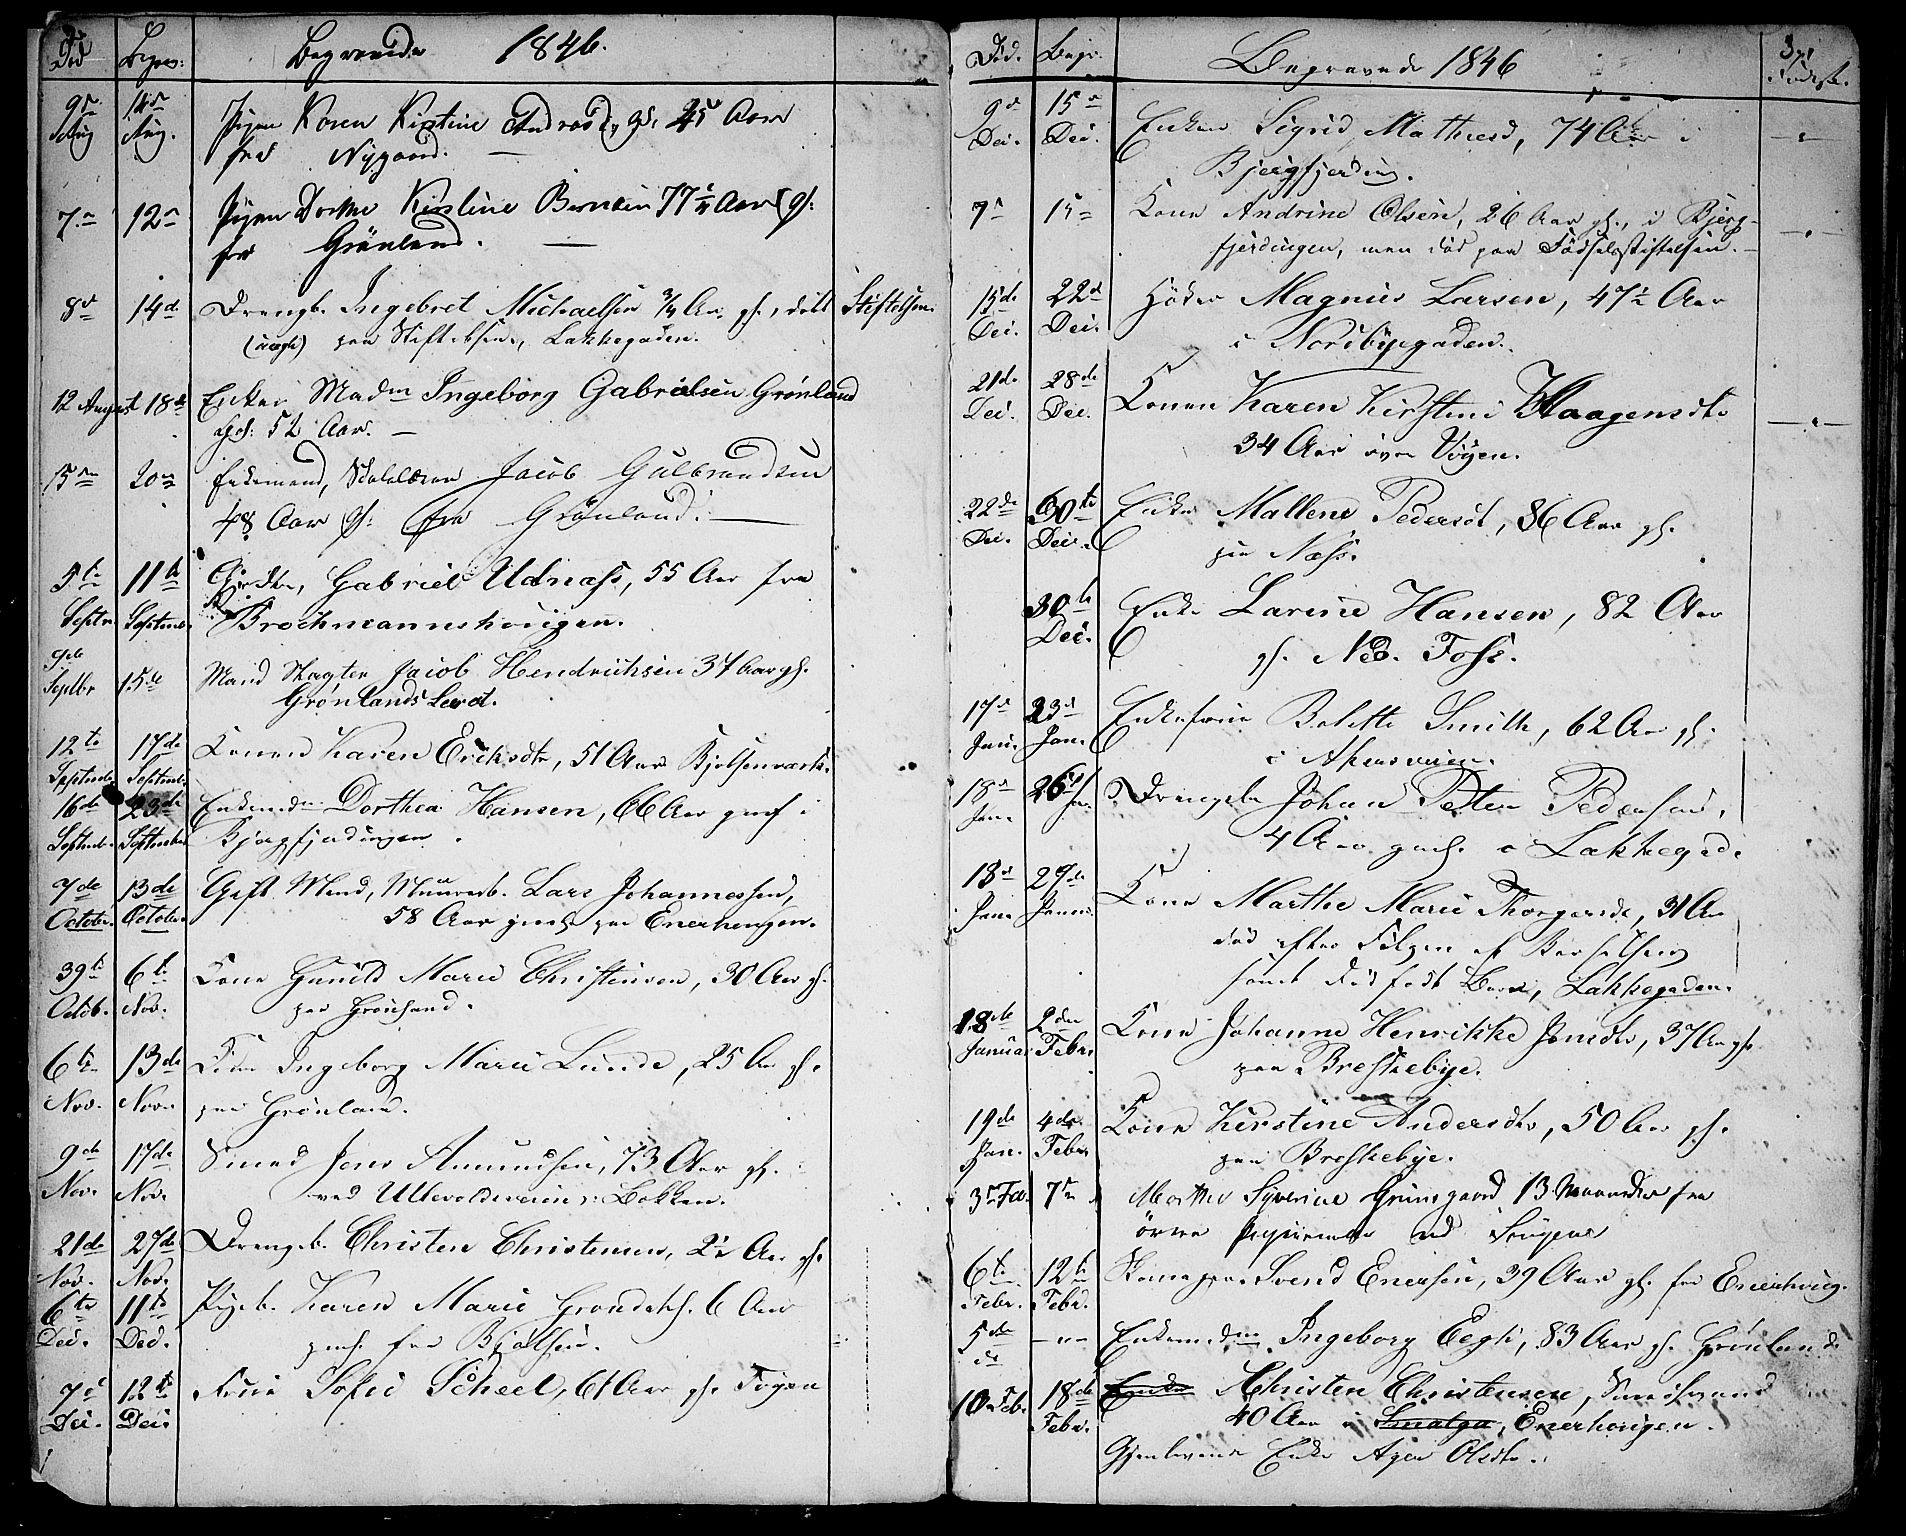 Død Begrav: Begravede 1846.
9de Aug 14de Aug. Pigen Karen Kirstine Andrasd., gl. 25 Aar
fra Nygaard. —
7de 12te Pigen Dorthe Kirstine Bernzin 77½ Aar gl.
fra Grønland. —
8de 14de Drengb. Ingebret Michaelsen ¾ Aar gl., død Stiftelsen.
(uægte) paa Stiftelsen, Lakkegaden.
12 August 18de Enken Madm Ingeborg Gabrielsen Grønland
gl: 52 Aar. —
15de 20de Enkemand, Skolelærer Jacob Gulbrandsen
48 Aar gl: fra Grønland. —
5te Septbr. 11te Septemb. Gabriel Udnæss, 55 Aar fra
Brochmannshougen.
9de Septbr 15de Mand Slagter Jacob Hendrichsen 34 Aar gl.
Grønlands Leret.
12te Septemb. 17de Septemb. Konen Karen Ericksdtr, 51 Aar Bjølsenværk.
16de Septemb. 23de September Enkemdm Dorthea Hansen, 66 Aar gml i
Bjergfjerdingen.
7de October. 13de October. Gift Mand, Muurarb. Lars Johannessen,
58 Aar gml paa Enerhougen.
39te Octob. 6te Nov. Kone Gunild Marie Christensen, 30 Aar gl.
paa Grønland.
6te Nov. 13de Nov. Ingeborg Marie Lunde, 25 Aar gl.
paa Grønland.
9de Nov. 17de Nov. Smed Jens Amundsen, 73 Aar gl.
ved Ullevoldsveien, Bakken.
21de Nov. 27de Nov. Drengeb. Christen Christensen, 2½ Aar gl.
6te Dec. 11te Dec. Pigeb. Karen Marie 6 Aar
gml. fra Bjølsen.
7de Dec. 12te Dec. Frue Sofie Scheel, 61 Aar gl. Tøyen
Død. Begr. Begravede 1846 371 Fødest.
9de Dec. 15de Dec. Enken Sigrid Mathisd, 74 Aar i
Bjergfjerding.
7de 15de Kone Andrine Olsen, 26 Aar gl., i Bjerg-
fjerdingen, men død paa Fødselsstiftelsen. —
15de Dec. 22de Dec. Høker Magnus Larsen, 47½ Aar
i Nordbygaden.
21de Dec. 28de Dec. Konen Karen Kirstine Haagensdtr
34 Aar øvre Vøyen.
22de Dec. 30te Dec. Enke Mallene Pedersdt, 86 Aar gl.
paa Næss.
30te Dec. Enke Larine Hansen, 82 Aar
gl. Ned. Foss.
17de Jan. 23de Jan. Enkefrue Bolette Smith, 62 Aar gl.
i Akersveien.
18de Jan. 26de Jan. Drengeb. Johan Petter Pedersen,
4 Aar gml. i Lakkegade
18de Jan. 29de Janr. Kone Marthe Marie Thorgersdt, 31 Aar
død efter Følgen af Barselseng
samt dødfødt Barn, Lakkegaden.
18de Januar 2den Febr. Kone Johanne Henrikke Jensdtr, 37 Aar gl
paa Breskebye.
19de Jan. 4de Febr. Kone Kirstine Andersdtr, 50 Aar gl.
paa Breskebye.
3de Feb. 7de Marthe Syverine Grimsgaard 13 Maaneder fra
øvre Papiermølle ved Sougene
6te Febr. 12te Febr. Skomager Svend Enersen, 39 Aar gl. fra Enerhoug.
5de d. —"— Enkemadm Ingeborg Eegli, 83 Aar gl. Grønland
10 Feb. 18de Febr. Enke Christen Christensen, Smedsvend
40 Aar i Smalga, Enerhougen.
Gjenlevende Enke Agea Olsdtr.